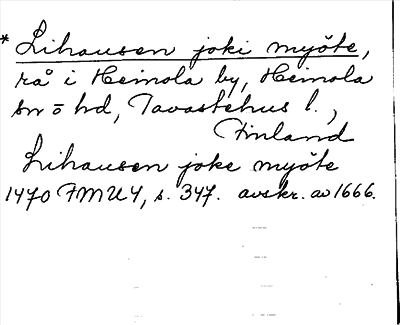 * Lihausen joki myöte,
rå i Heinola by, Heinola
sn o hd, Tavastehus l.,
Finland
Lihausen joke myöte
1470 FMU 4, s. 347. avskr. av 1666.